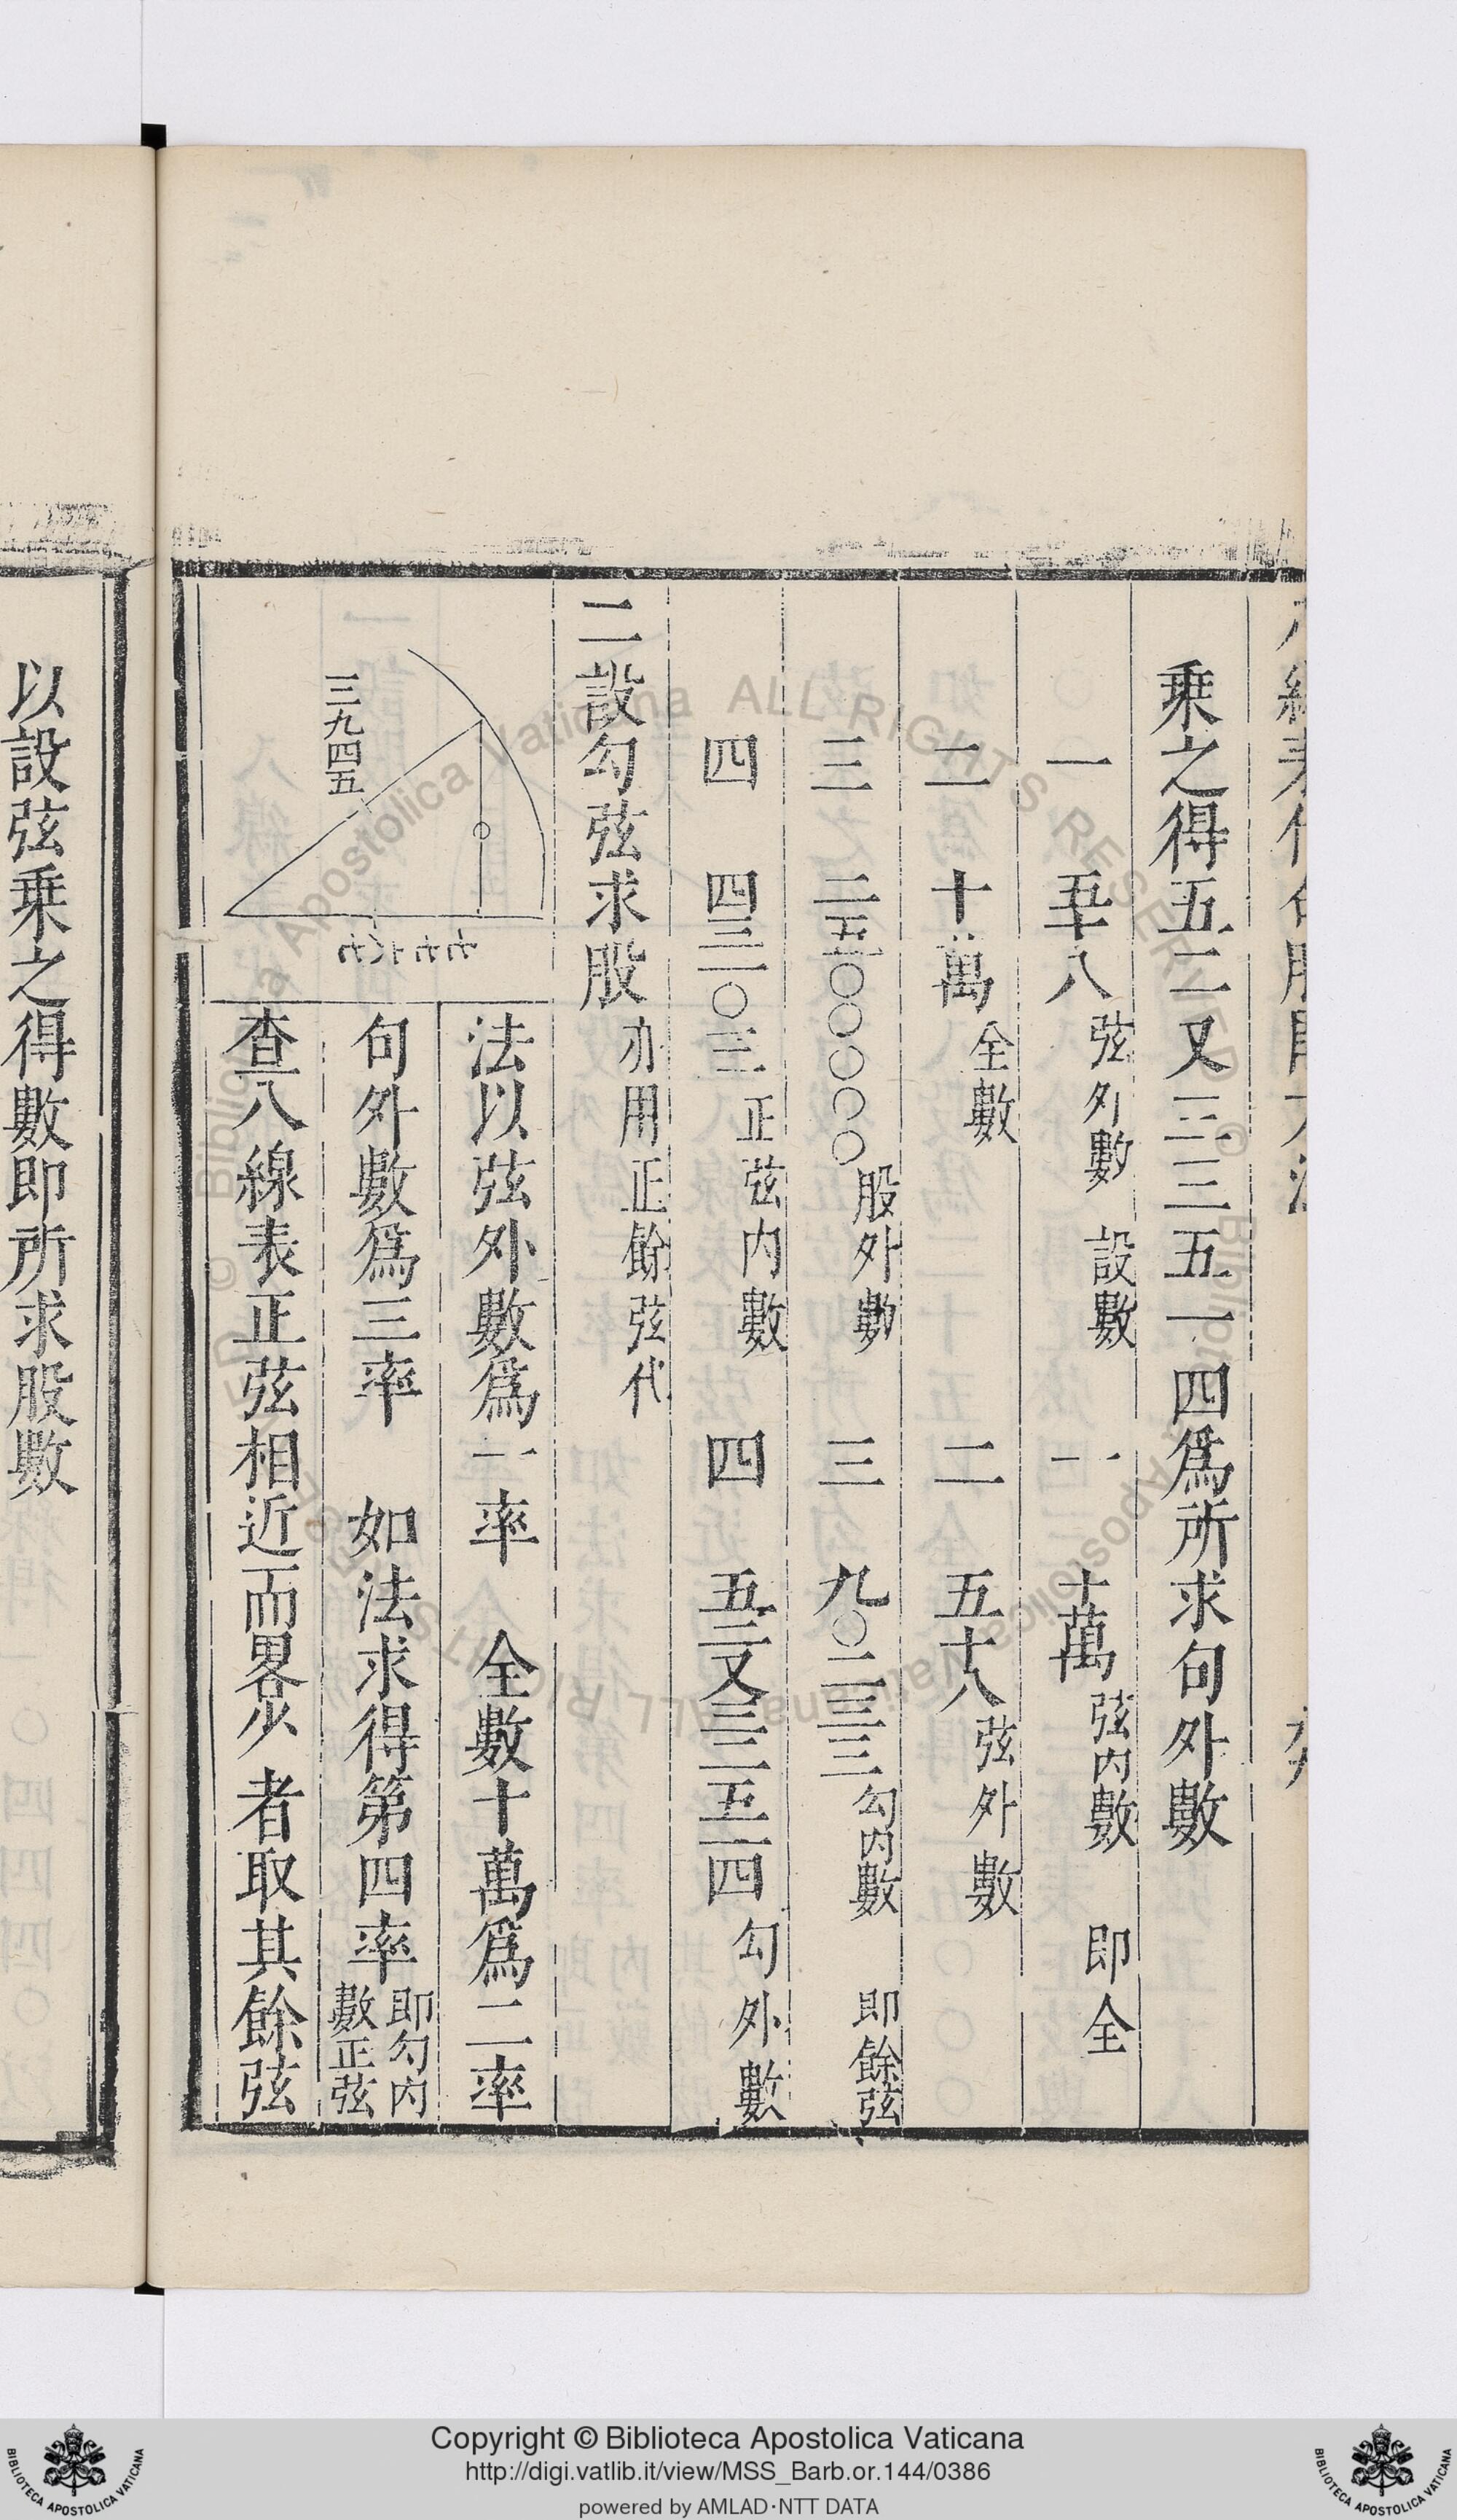 乘之得五二又三三五一四爲所求句外數
一 五十八 弦外數 設數 一 十萬 弦内數 即全
二 十萬 全數 二 五十八 弦外數
三 二五〇〇〇〇〇 股外數 三 九〇二三三 勾内數 即餘弦
四 四三一〇三 正弦内數 四 五二又三三五一四 勾外數
二設勾弦求股 亦用正餘弦代
法以弦外數爲一率 全數十萬爲二率
句外數爲三率 如法求得第四率 即勾内數正弦
查八線表正弦相近而畧少者取其餘弦
三九四五
〇
以設弦乘之得數即所求股數
Copyright © Biblioteca Apostolica Vaticana
http://digi.vatlib.it/view/MSS_Barb.or.144/0386
powered by AMLAD·NTT DATA
BIBLIOTECA APOSTOLICA VATICANA
BIBLIOTECA APOSTOLICA VATICANA